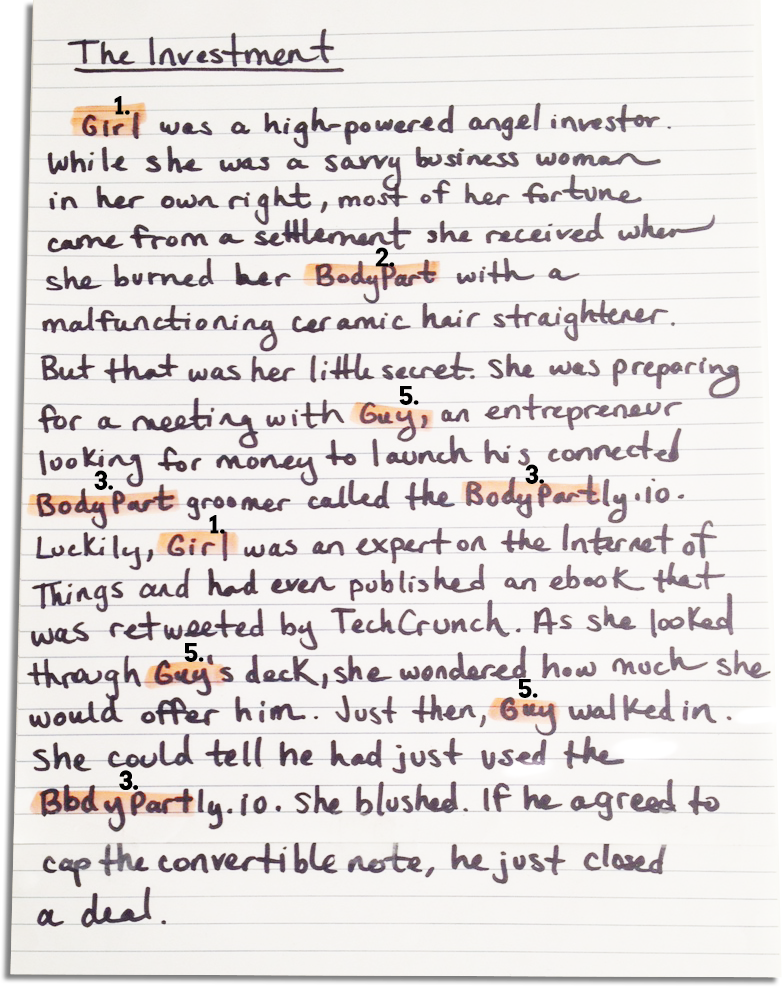 The Investment
1.
Girl was a high-powered angel investor.
While she was a savvy business woman
in her own right, most of her fortune
came from a settlement she received when
2.
she burned her BodyPart with a
malfunctioning ceramic hair straightener.
But that was her little secret. She was preparing
5.
for a meeting with Guy, an entrepreneur
looking for money to launch his connected
3. 3.
BodyPart groomer called the BodyPartly.io.
1.
Luckily, Girl was an expert on the Internet of
Things and had even published an ebook that
was retweeted by TechCrunch. As she looked
5.
through Guy's deck, she wondered how much she
5.
would offer him. Just then, Guy walked in.
She could tell he had just used the
3.
BbdyPartly.io. She blushed. If he agreed to
cap the convertible note, he just closed
a deal.